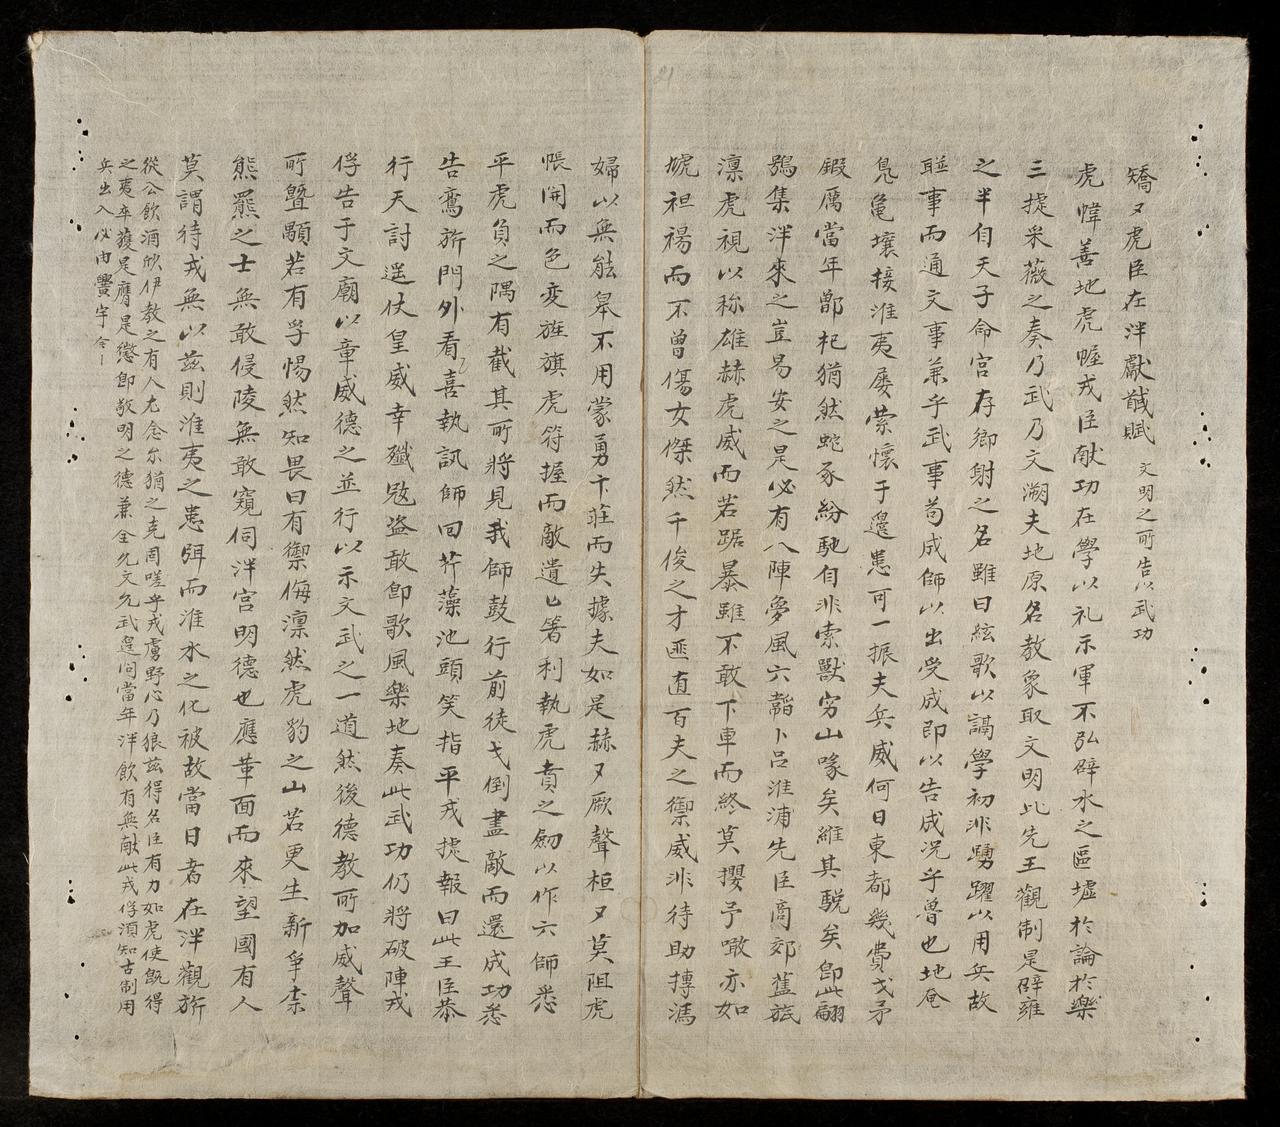 矯又虎臣在泮獻馘賦 文明之所告以武功
虎幃善地虎幄戎臣献功在學以礼示軍不弘辟水之區墟於論於樂
三捷采薇之奏乃武乃文溯夫地原名教象取文明此先王觀制是辟雍
之半自天子命宮存鄉射之名雖曰絃歌以謁學初非踴躍以用兵故
聯事而通文事兼乎武事苟成師以出受成即以告成况乎魯也地奄
鳧龜壤接淮夷屡萦懷于邊患可一振夫兵威何日東都幾費戈矛
鍛厲當年鄫杞猶然蛇豕紛馳自非索獸穷山喙矣維其駾矣即此翩
鴞集泮來之豈易安之是必有八陣夢風六韜卜吕淮浦先臣高郊舊旅
凛虎視以称雄赫虎威而若踞暴雖不敢下車而終莫攖予噉亦如
虓袒裼而不曾傷女傑然千俊之才匪直百夫之禦威非待助摶馮
婦以無能皋不用蒙勇卞莊而失據夫如是赫又厥聲桓又莫阻虎
帳開而色变旌旗虎符握而敵遺匕箸利執虎賁之劒以作六師悉
平虎負之隅有截其所將見我師鼓行前徒戈倒盡敵而還成功悉
告鸞旂門外看喜執訊師回芹藻池頭笑指平戎捷報曰此王臣恭
行天討遥仗皇威幸殲毁盗敢卽歌風樂地奏此武功仍將破陣戎
俘告于文廟以章威德之並行以示文武之一道然後德教所加威聲
所曁顒若有孚惕然知畏曰有禦侮凛然虎豹之山若更生新争柰
熊羆之士無敢侵陵無敢窺伺泮宮明德也應革面而來望國有人
莫謂待戎無以茲則淮夷之患弭而淮水之化被故當日者在泮觀旂
從公飲酒欣伊教之有人尤念尔猶之克周嗟乎戎虜野心乃狼茲得名臣有力如虎使旣得
之夷卒蒦是膺是懲卽敬明之德兼全允文允武遑问當年泮飲有無献此戎俘須知古制用
兵出入必由黌宇 仝